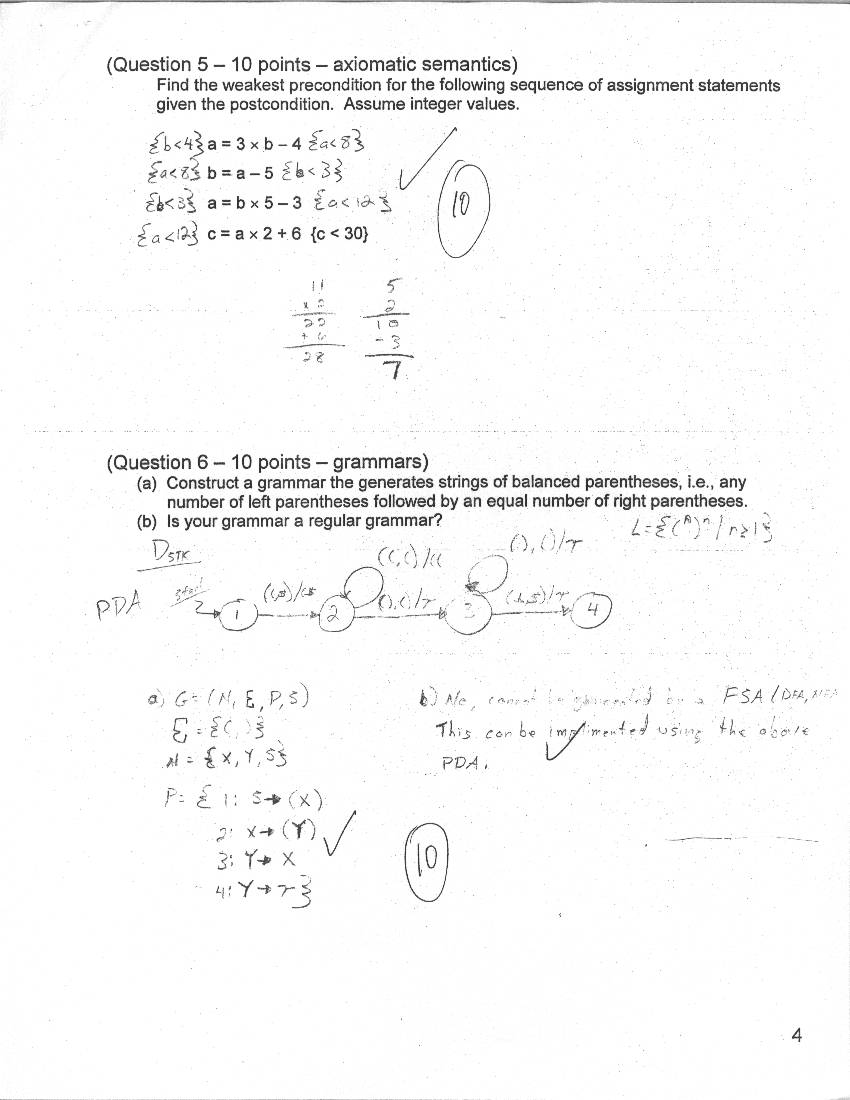 (Question 5 – 10 points – axiomatic semantics)
Find the weakest precondition for the following sequence of assignment statements
given the postcondition. Assume integer values.
{b<4} a = 3 x b – 4 {a<8}
{a<8} b = a – 5 {b<3}
{b<3} a = b x 5 – 3 {a<12}
{a<12} c = a x 2 + 6 {c < 30}
10
11 5
x 2 2
22 10
+ 6 - 3
28 7
(Question 6 – 10 points – grammars)
(a) Construct a grammar the generates strings of balanced parentheses, i.e., any
number of left parentheses followed by an equal number of right parentheses.
(b) Is your grammar a regular grammar?
L={(ⁿ)ⁿ/n≥1}
DSTK
PDA 1 2 3 4
a) G=(N, Σ, P, S)
Σ={(, )}
N = {X, Y, S}
P= { 1: S→(X)
2: X→(Y)
3: Y→ X
4: Y→τ}
b) No, cannot be generated by a FSA (DFA, NFA
This can be implimented using the above
PDA.
10
4